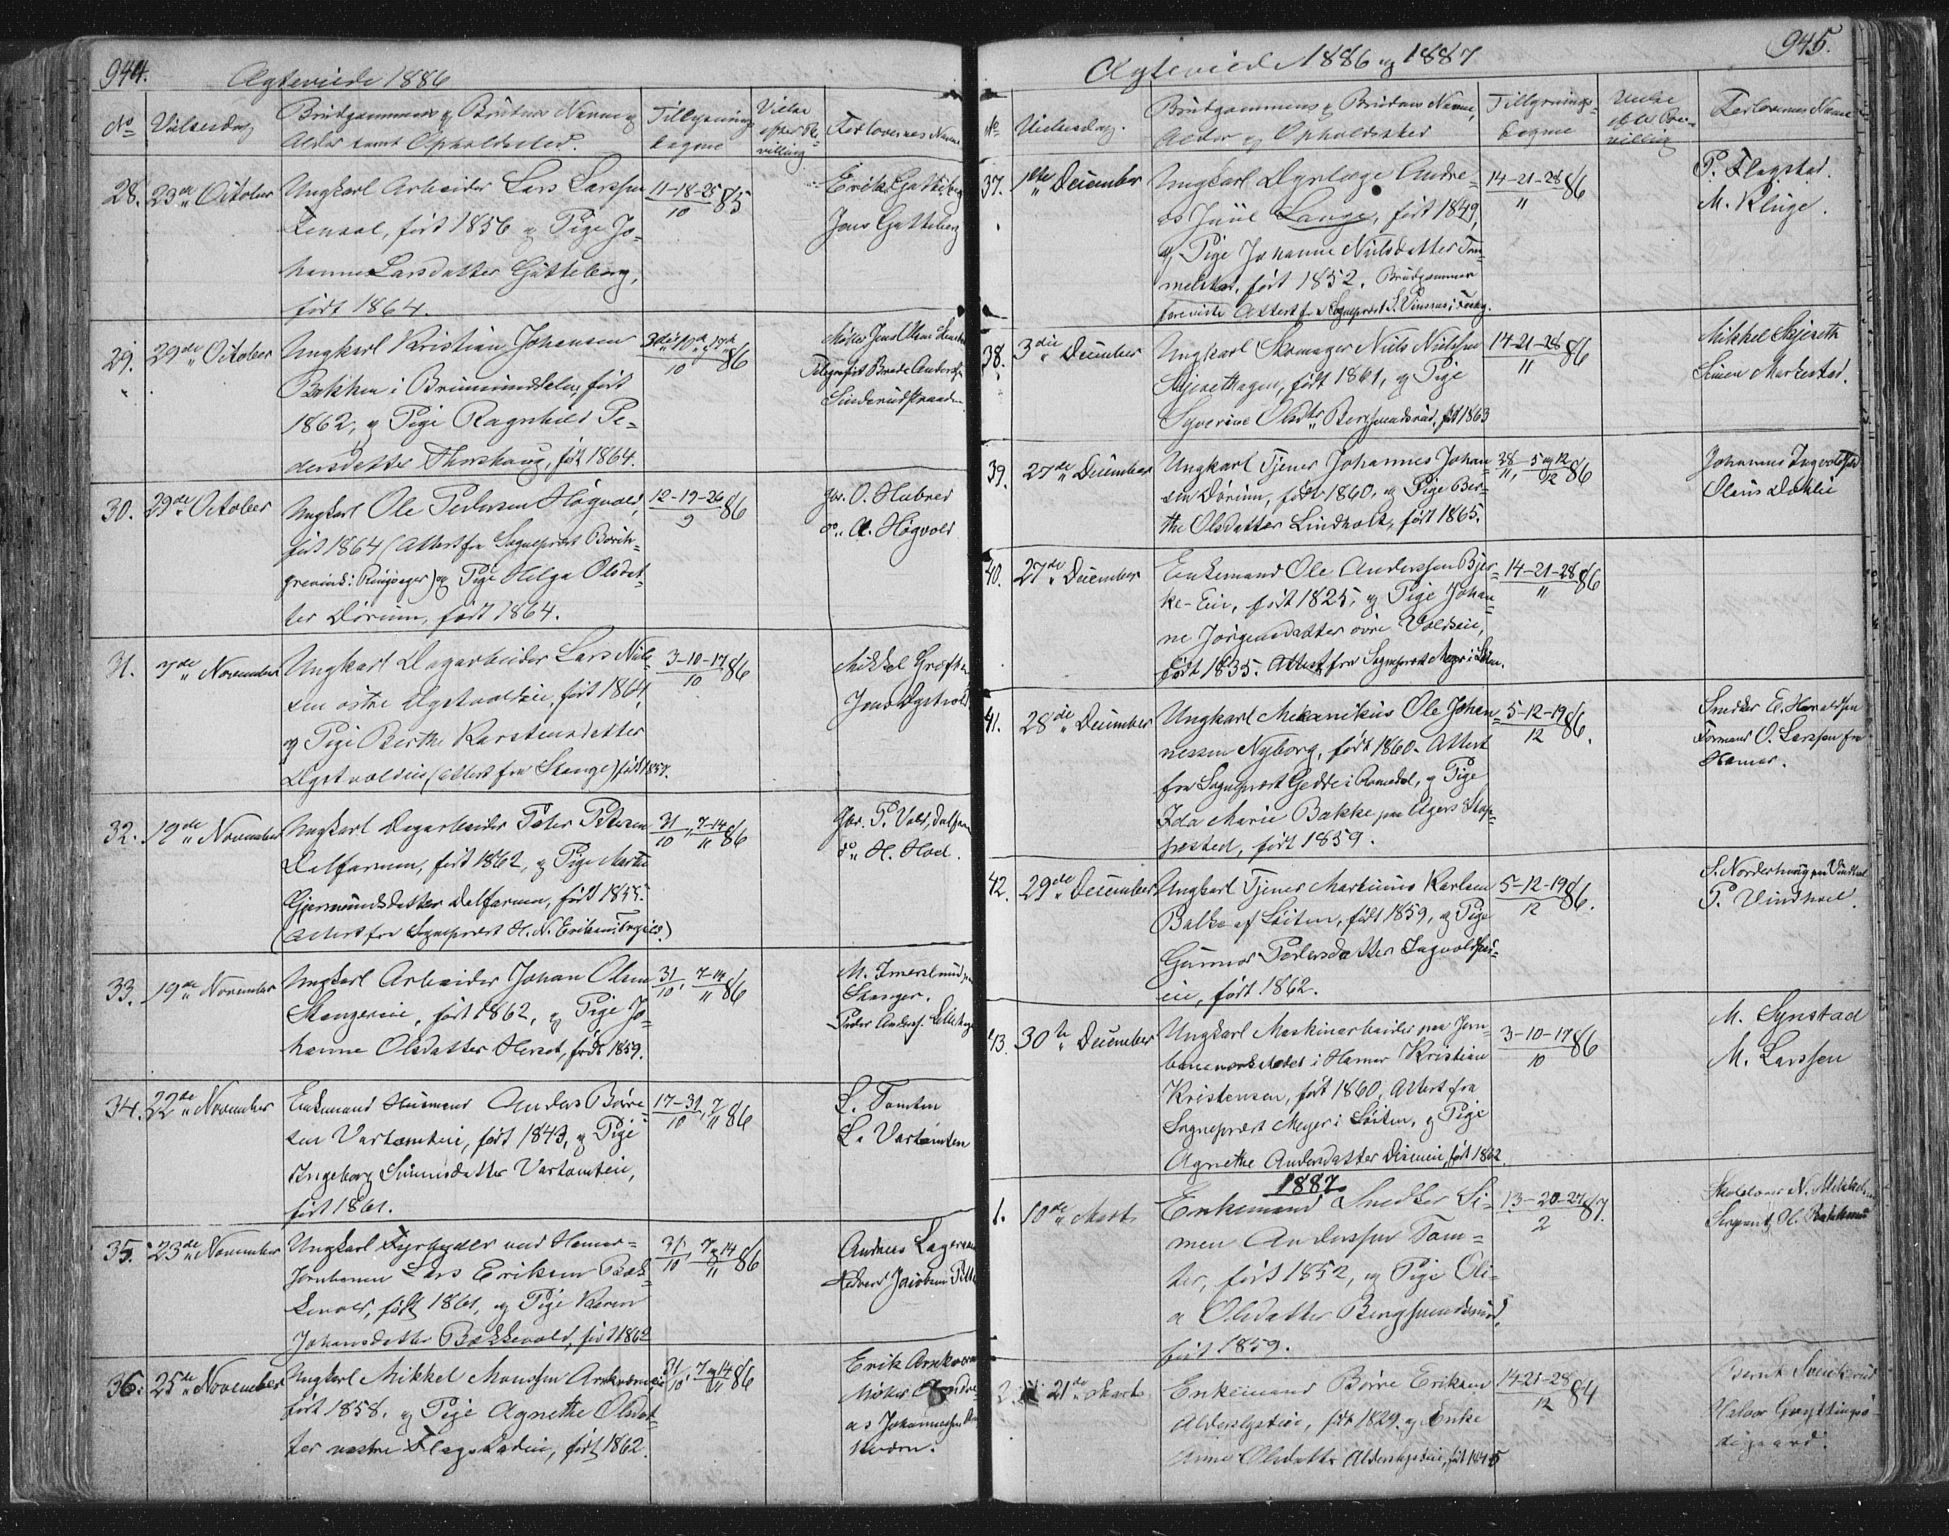 944.
Ægteviede 1886
No
Vielsesdag
Brudgommens og Brudens Navn og
Alder samt Opholdssted.
Tillysnings
dagene
Vielse
efter Be-
villing
Forlovernes Navne
28. 29de October
Ungkarl Arbeider Lars Larssen
født 1856 og Pige Jo-
hanne Larsdatter Gütteborg,
født 1864.
11-18-25/10 85
Erik Gütteborg
Jens Gütteborg
29. 29de October
Ungkarl Kristian Johansen
Bakken i Brumunddalen, født
1862, og Pige Ragnhild Pe-
dersdatter Thorshaug, født 1864.
3die, 10de, 17de/10 86
Jens Olsen
Brede Anders
30. 29de October
Ungkarl Ole Pedersen Høgvold,
født 1864 (Attest fra Sogneprest Borch-
grevink i Ringsager) og Pige Helga Olsdat-
ter Dørum, født 1864.
12-19-26/9 86
O. Hubred
do A. Høgvold
31. 7de November
Ungkarl Dagarbeider Lars Niel-
sen østre Ogstvoldeie, født 1864,
og Pige Berthe Karstensdatter
Ogstvoldeie (Attest fra Stange) født 1857.
3-10-17/10 86
Mikkel
Jens Ogstvold
32. 19de November
Ungkarl Dagarbeider Peter Petersen
Dalfarmen, født 1862, og Pige Marthe
Gjermundsdatter Dalfarmen, født 1855.
(Attest fra Sogneprest H. N. Eriksen i )
31/10, 7-14/11 86
P. Vold,
do H. Hoel.
33. 19de November
Ungkarl Arbeider Johan Olsen
Stangereie, født 1862, og Pige Jo-
hanne Olsdatter født 1859.
31/10, 7-14/11 86
M. Imerslund
Stanger.
Peder Anders.
34. 22de November
Enkemand Husmand Anders Børre-
sen Vartomteie, født 1843, og Pige
Ingeborg Simensdatter Vartomteie,
født 1861.
17-31/10, 7/11 86
L. Tomten
L. Vartomten
35. 23de November
Ungkarl Fyrbøder ved Hamar-
Jernbanen Lars Eriksen Bæk-
kevold, født 1861, og Pige Karen
Johansdatter Bækkevold, født 1862
31/10, 7 og 14/11 86
Andreas Lagersen
Edvard Jacobsen
36. 25de November
Ungkarl Mikkel Monssen Arnkværneie
født 1858, og Pige Agnethe Olsdat-
ter vestre Flagstadeie, født 1862.
31/10, 7 og 14/11 86
Erik Arnkværn
Møller Andre-
as Johannessen
kværn.
945.
Ægteviede 1886 og 1887
No
Vielsesdag.
Brudgommens og Brudens Navne,
Alder og Opholdssted
Tillysnings-
dagene
Vielse
efter Be-
villing
Forlovernes Navne
37. 1ste December
Ungkarl Dyrlæge Andre-
as Juul Lange, født 1849,
og Pige Johanne Nielsdatter Tom-
melstad, født 1852. Brudgommen
foreviste Attest fra Sogneprest
14-21-28/11 86
P. Flagstad.
M. Kluge.
38. 3die December
Ungkarl Skomager Niels Nielsen
Skjesethagen, født 1861, og Pige
Syverine Olsdtr Bergsundsrud, født 1863
14-21-28/11 86
Mikkel Skjeseth
Simen Markestad.
39. 27de December
Ungkarl Tjener Johannes Johan-
sen Dørum, født 1860, og Pige Ber-
the Olsdatter Lindholt, født 1865.
28/11, 5 og 12/12 86
Johannes
Olaus Dahlie
40. 27de December
Enkemand Ole Anderssen Bjer-
ke-Eie, født 1825, og Pige Johan-
ne Jørgensdatter øvre Voldeie,
født 1835. Attest fra Sogneprest Meyer i Løiten.
14-21-28/11 86
41. 28de December
Ungkarl Mekanikus Ole Johan-
nessen Nyborg, født 1860. Attest
fra Sogneprest Gedde i Romedal, og Pige
Ida Marie Bakke paa Agers Stop-
pested, født 1859.
5-12-19/12 86.
Smeder E. Haraldsen
Formand O. Larssen fra
Hamar.
42. 29de December
Ungkarl Tjener Martinius Karlsen
Balke af Løiten, født 1859, og Pige
Gunnor Pedersdatter Ingvoldstad-
eie, født 1862.
5-12-19/12 86.
S. Norderhaug
P. Vindhoel.
43. 30te December
Ungkarl Maskinarbeider paa Jern-
baneværkstedet i Hamar Kristian
Kristensen, født 1860, Attest fra
Sogneprest Meyer i Løiten, og Pige
Agnethe Andersdatter født 1862.
3-10-17/10 86
M. Synstad
M. Larssen
1887
1. 10de Marts
Enkemand Snedker Si-
men Anderssen Tom-
ter, født 1852, og Pige Oli-
a Olsdatter Bergsundsrud,
født 1859.
13-20-27/2 87.
Skolelærer N. Mikkelsen
Sergeant O.
2. 21de Marts
Enkemand Børre Eriksen
Alderslysteie, født 1829, og Enke
Anne Olsdatter Alderslysteie, født 1845
14-21-28/12 84
Bernt
Halvor